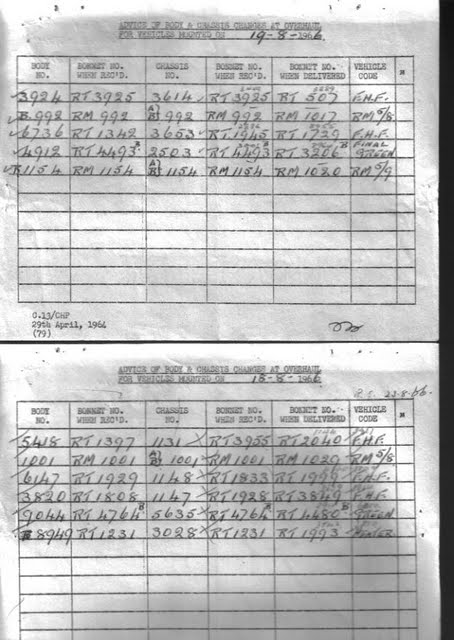 ADVICE OF BODY & CHASSIS CHANGES AT OVERHAUL
FOR VEHICLES MOUNTED ON 19-8-1966
BODY NO. BONNET NO. WHEN REC'D. CHASSIS NO. BONNET NO. WHEN REC'D. BONNET NO. WHEN DELIVERED VEHICLE CODE
3924 RT 3925 3614 RT 3925 RT 507 F.H.F.
B.992 RM 992 992 RM 992 RM 1017 RM 5/8
6736 RT 1342 3653 RT 1945 RT 1729 F.H.F.
4912 RT 4493 B 2503 RT 4493 B RT 3206 B FINAL GREEN
1154 RM 1154 1154 RM 1154 RM 1080 RM 5/9
C.13/CHP
29th April, 1964
(79)
ADVICE OF BODY & CHASSIS CHANGES AT OVERHAUL
FOR VEHICLES MOUNTED ON 18-8-1966
23-8-66.
BODY NO. BONNET NO. WHEN REC'D. CHASSIS NO. BONNET NO. WHEN REC'D. BONNET NO. WHEN DELIVERED VEHICLE CODE
5418 RT 1397 1131 RT 3955 RT 2040 F.H.F.
1001 RM 1001 1001 RM 1001 RM 1029 RM 5/8.
6147 RT 1929 1148 RT 1833 RT 1999 F.H.F.
3820 RT 1808 1147 RT 1928 RT 3849 F.H.F.
9044 RT 4764 B 5635 RT 4764 B RT 4680 B GREEN
8949 RT 1231 3028 RT 1231 RT 1993